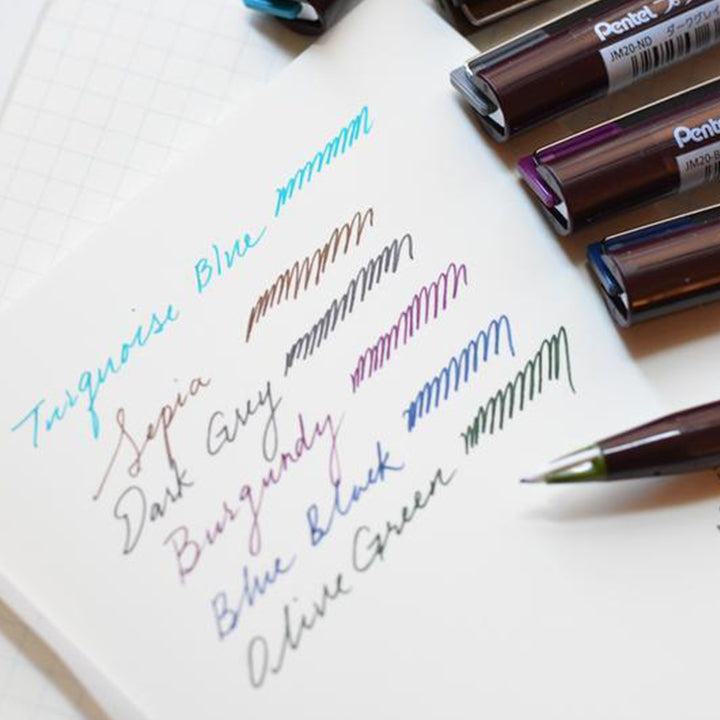 Turquoise Blue
Sepia
Dark Grey
Burgundy
Blue Black
Olive Green
Pentel
JM20-ND ダークグレイ
Pentel
JM20-B